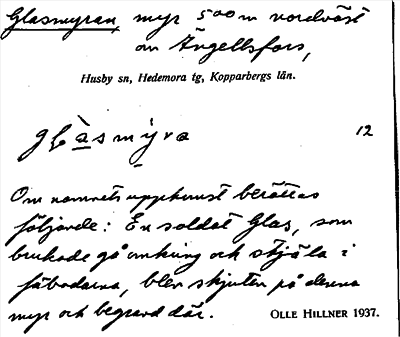 Glasmyran, myr 500 m nordväst
om Ängelsfors,
Husby sn, Hedemora tg, Kopparbergs län.
glàsmýra
12
Om namnets uppkomst berättas
följande: En soldat Glas, som
brukade gå omkring och stjäla i
fäbodarna, blev skjuten på denna
myr och begravd där.
OLLE HILLNER 1937.